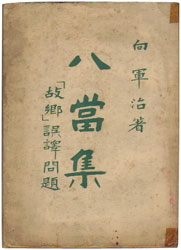 向軍治著
八當集
「故鄉」誤譯問題